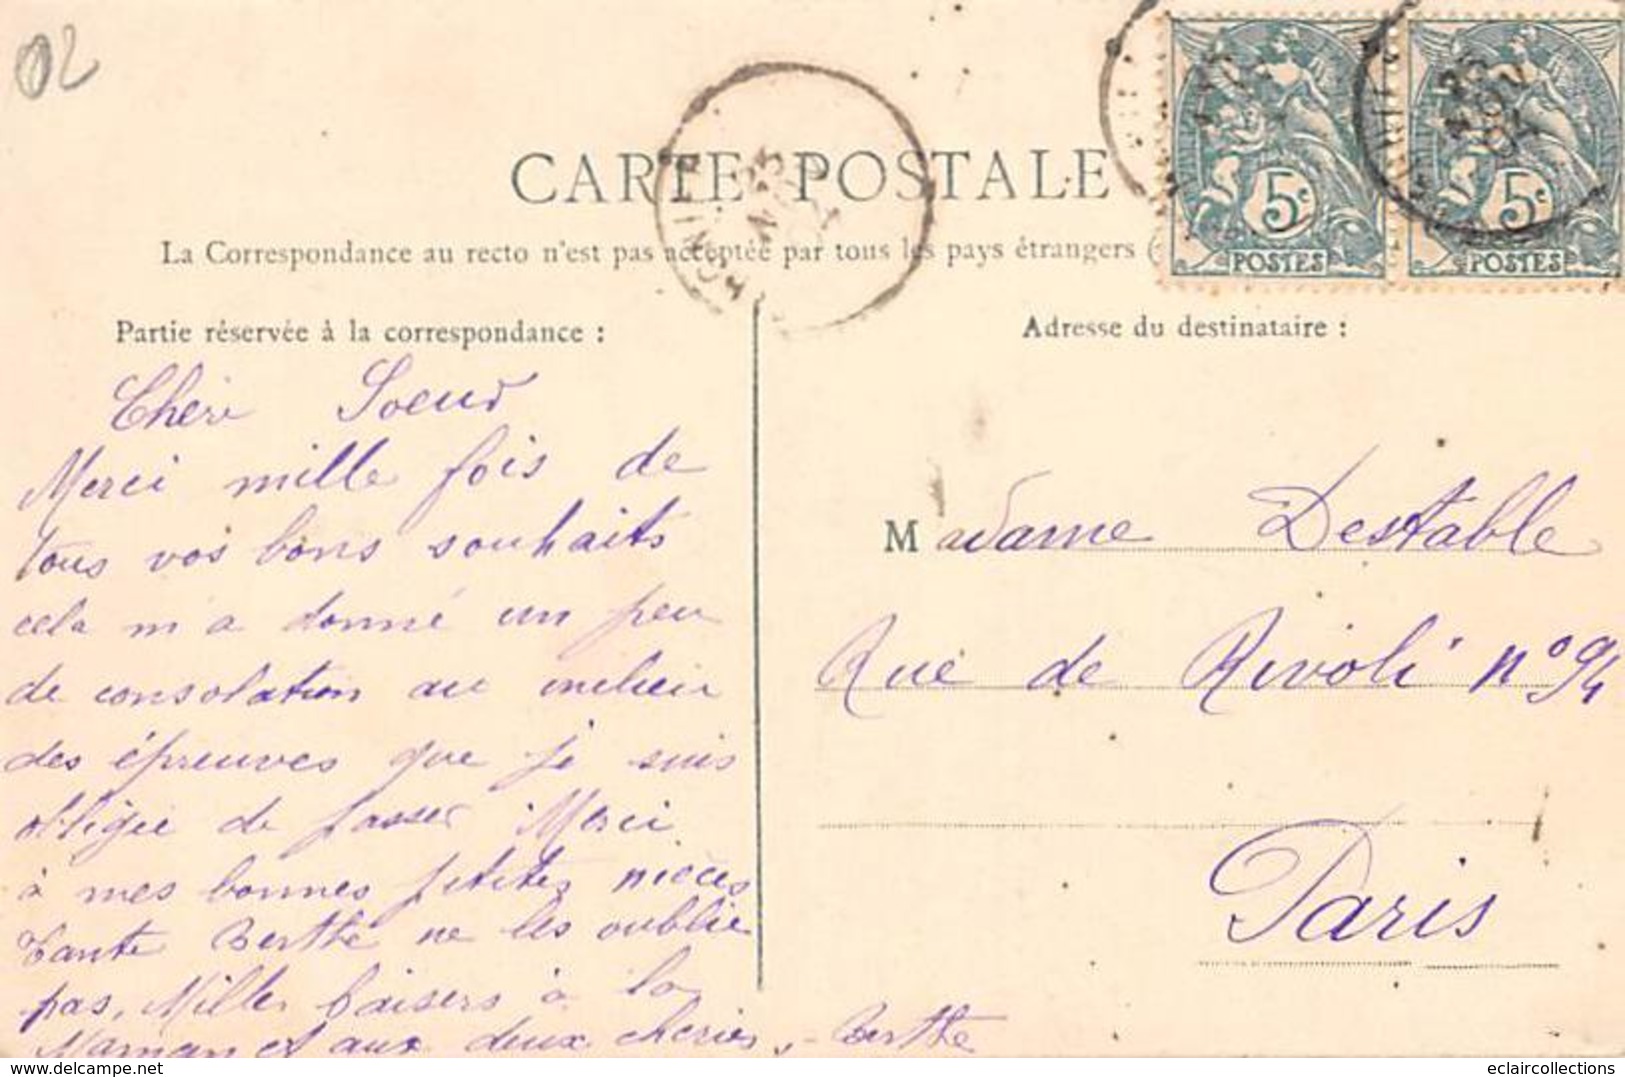 02
CARTE POSTALE
La Correspondance au recto n'est pas acceptée par tous les pays étrangers (
5c
POSTES
5c
POSTES
Partie réservée à la correspondance :
Chère Soeur
Merci mille fois de
tous vos bons souhaits
cela m'a donné un peu
de consolation au milieu
des épreuves que je suis
obligée de passer Merci
à mes bonnes petites nièces
Tante Berthe ne les oublie
pas, Milles baisers à la
Maman et aux deux cheries, - Berthe
Adresse du destinataire :
Madame Destable
Rue de Rivoli n° 94
Paris
eclaircollections